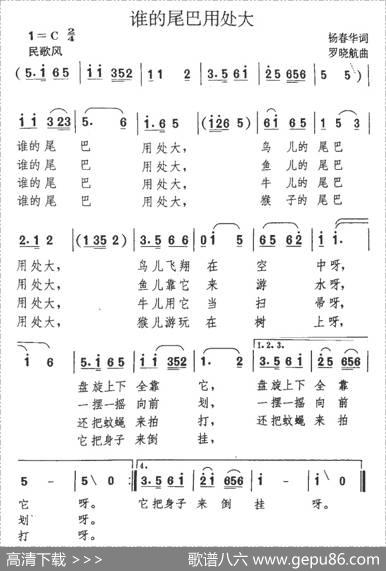 谁的尾巴用处大
1=C 2/4
杨春华词
民歌风
罗晓航曲
(5·i 65 | ii i352 | 11 2 | 3·5 6i | 2i25 656 | 5 5) |
ii 323 | 5· 6 | i·6 5 | (i26 5) | 6i 65 | 1 53 |
谁的尾 巴 用处大, 鸟 儿的 尾巴
谁的尾 巴 用处大, 鱼 儿的 尾巴
谁的尾 巴 用处大, 牛 儿的 尾巴
谁的尾 巴 用处大, 猴 子的 尾巴
2·1 2 | (1352) | 3·5 66 | 0i 5 | 65 62 | i i· |
用处大, 鸟儿飞翔 在 空 中呀,
用处大, 鱼儿靠它 来 游 水呀,
用处大, 牛儿用它 当 扫 帚呀,
用处大, 猴儿游玩 在 树 上呀,
i 6 | 5·i 65 | ii i352 | 1· 2 | 3·5 6i | 2i5 656 |
1.2.3.
盘旋上下 全靠 它, 盘旋上下 全靠
一摆一摇 向前 划, 一摆一摇 向前
还把蚊蝇 来拍 打, 还把蚊蝇 来拍
它把身子 来倒 挂,
5 - | 5 \ 0 :| 3·5 6i | 2i 656 | i - | i \ 0 ‖
4.
它 呀。 它把身子 来 倒 挂 呀。
划 呀。
打 呀。
高清下载 >>>
歌谱八六 www.gepu86.com